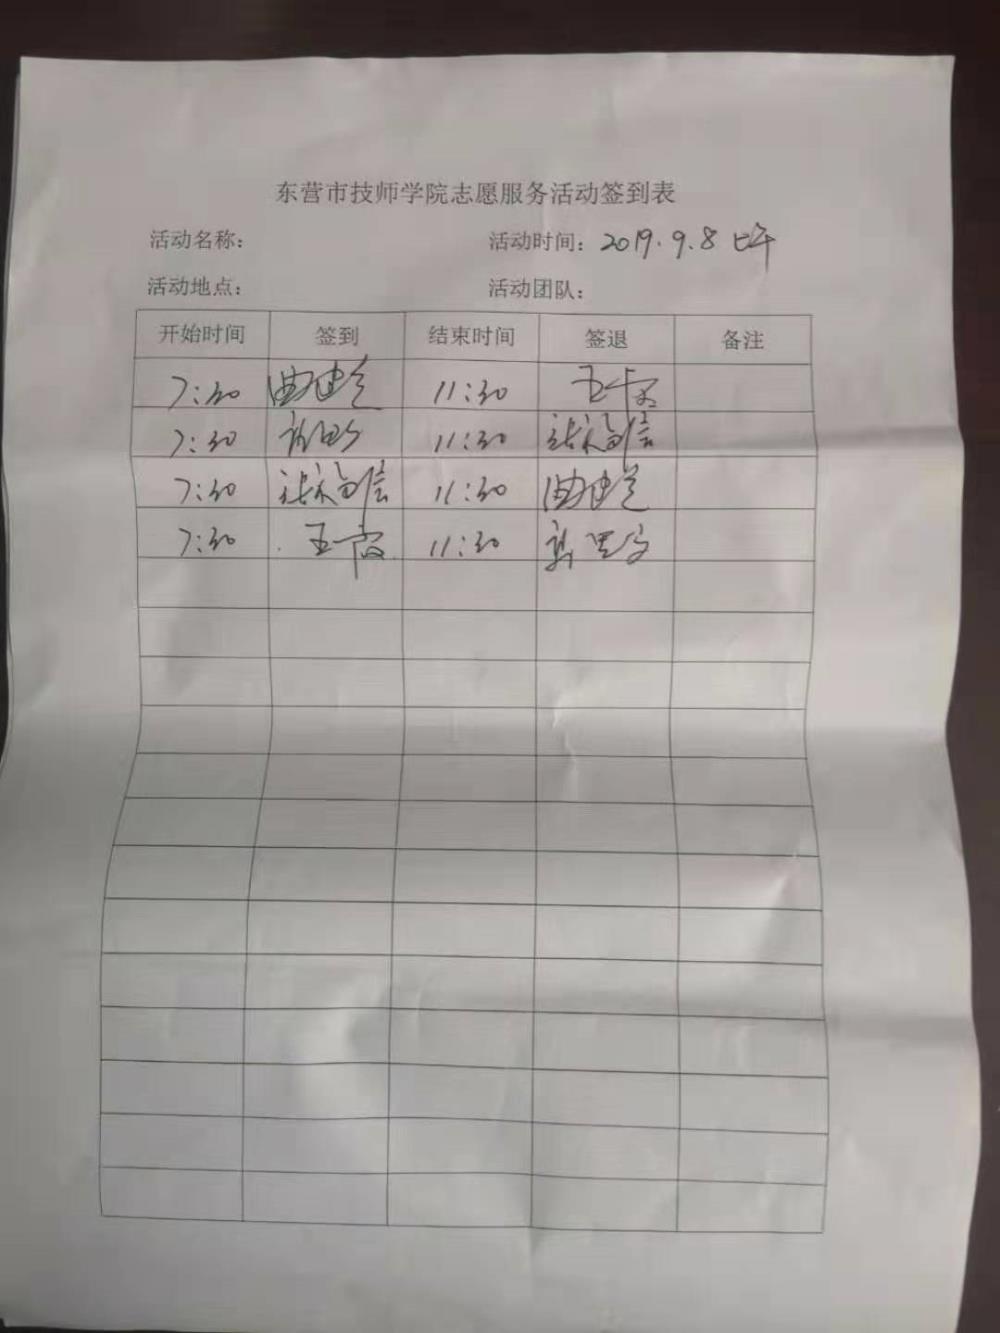 东营市技师学院志愿服务活动签到表
活动名称： 活动时间：2019.9.8 上午
活动地点： 活动团队：
开始时间 签到 结束时间 签退 备注
7:30 曲建兰 11:30
7:30 11:30 张福信
7:30 张福信 11:30 曲建兰
7:30 王霞 11:30